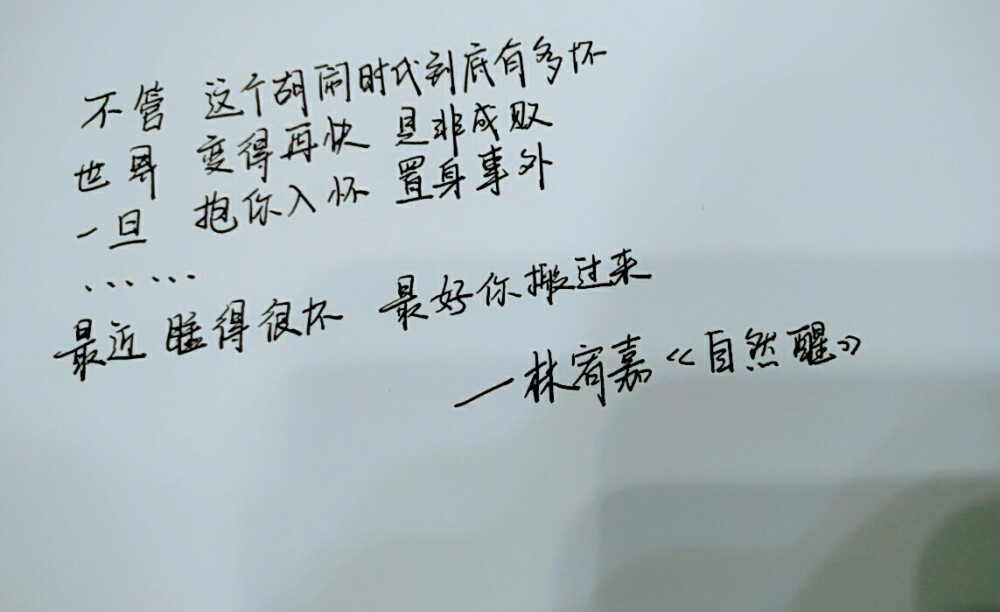 不管 这个胡闹时代到底有多怀
世界 变得再快 是非成败
一旦 抱你入怀 置身事外
……
最近 睡得很坏 最好你搬过来
—林宥嘉《自然醒》